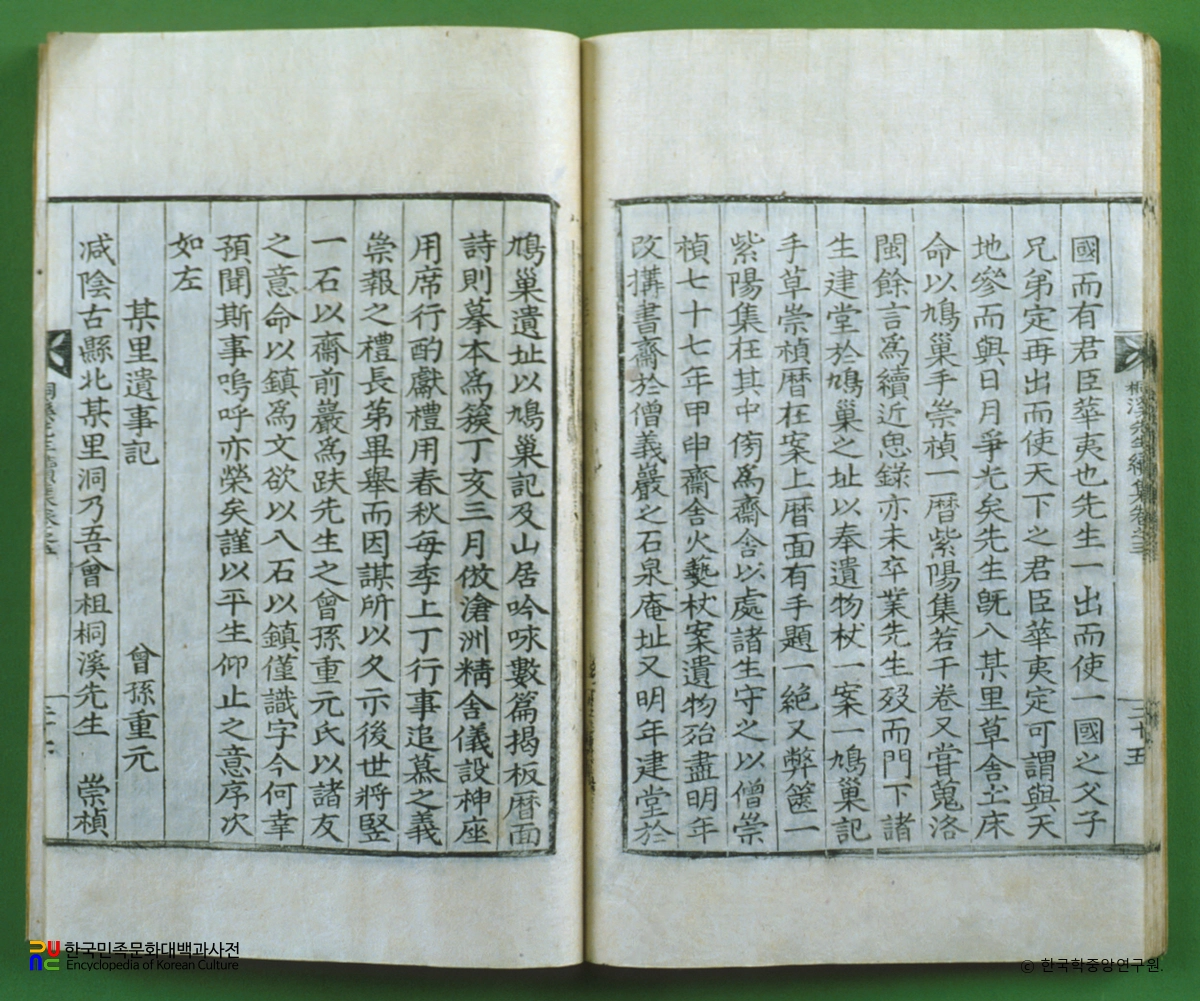 國而有君臣華夷也先生一出而使一國之父子
兄弟定再出而使天下之君臣華夷定可謂與天
地參而與日月爭光矣先生旣入某里草舍土床
命以鳩巢手崇禎一曆紫陽集若干卷又嘗蒐洛
閩餘言爲續近思錄亦未卒業先生歿而門下諸
生建堂於鳩巢之址以奉遺物杖一案一鳩巢記
手草崇禎曆在案上曆面有手題一絶又弊篋一
紫陽集在其中傍爲齋舍以處諸生守之以僧崇
禎七十七年甲申齋舍火蓺杖案遺物殆盡明年
改搆書齋於僧義巖之石泉庵址又明年建堂於
桐溪先生續集卷之三
二十五
鳩巢遺址以鳩巢記及山居吟咏數篇揭板曆面
詩則摹本爲簇丁亥三月倣滄洲精舍儀設神座
用席行酌獻禮用春秋每季上丁行事追慕之義
崇報之禮長第畢舉而因謀所以久示後世將竪
一石以齋前巖爲趺先生之曾孫重元氏以諸友
之意命以鎭爲文欲以入石以鎭僅識字今何幸
預聞斯事嗚呼亦榮矣謹以平生仰止之意序次
如左
某里遺事記
曾孫重元
減陰古縣北某里洞乃吾曾祖桐溪先生 崇禎
한국민족문화대백과사전
Encyclopedia of Korean Culture
© 한국학중앙연구원.